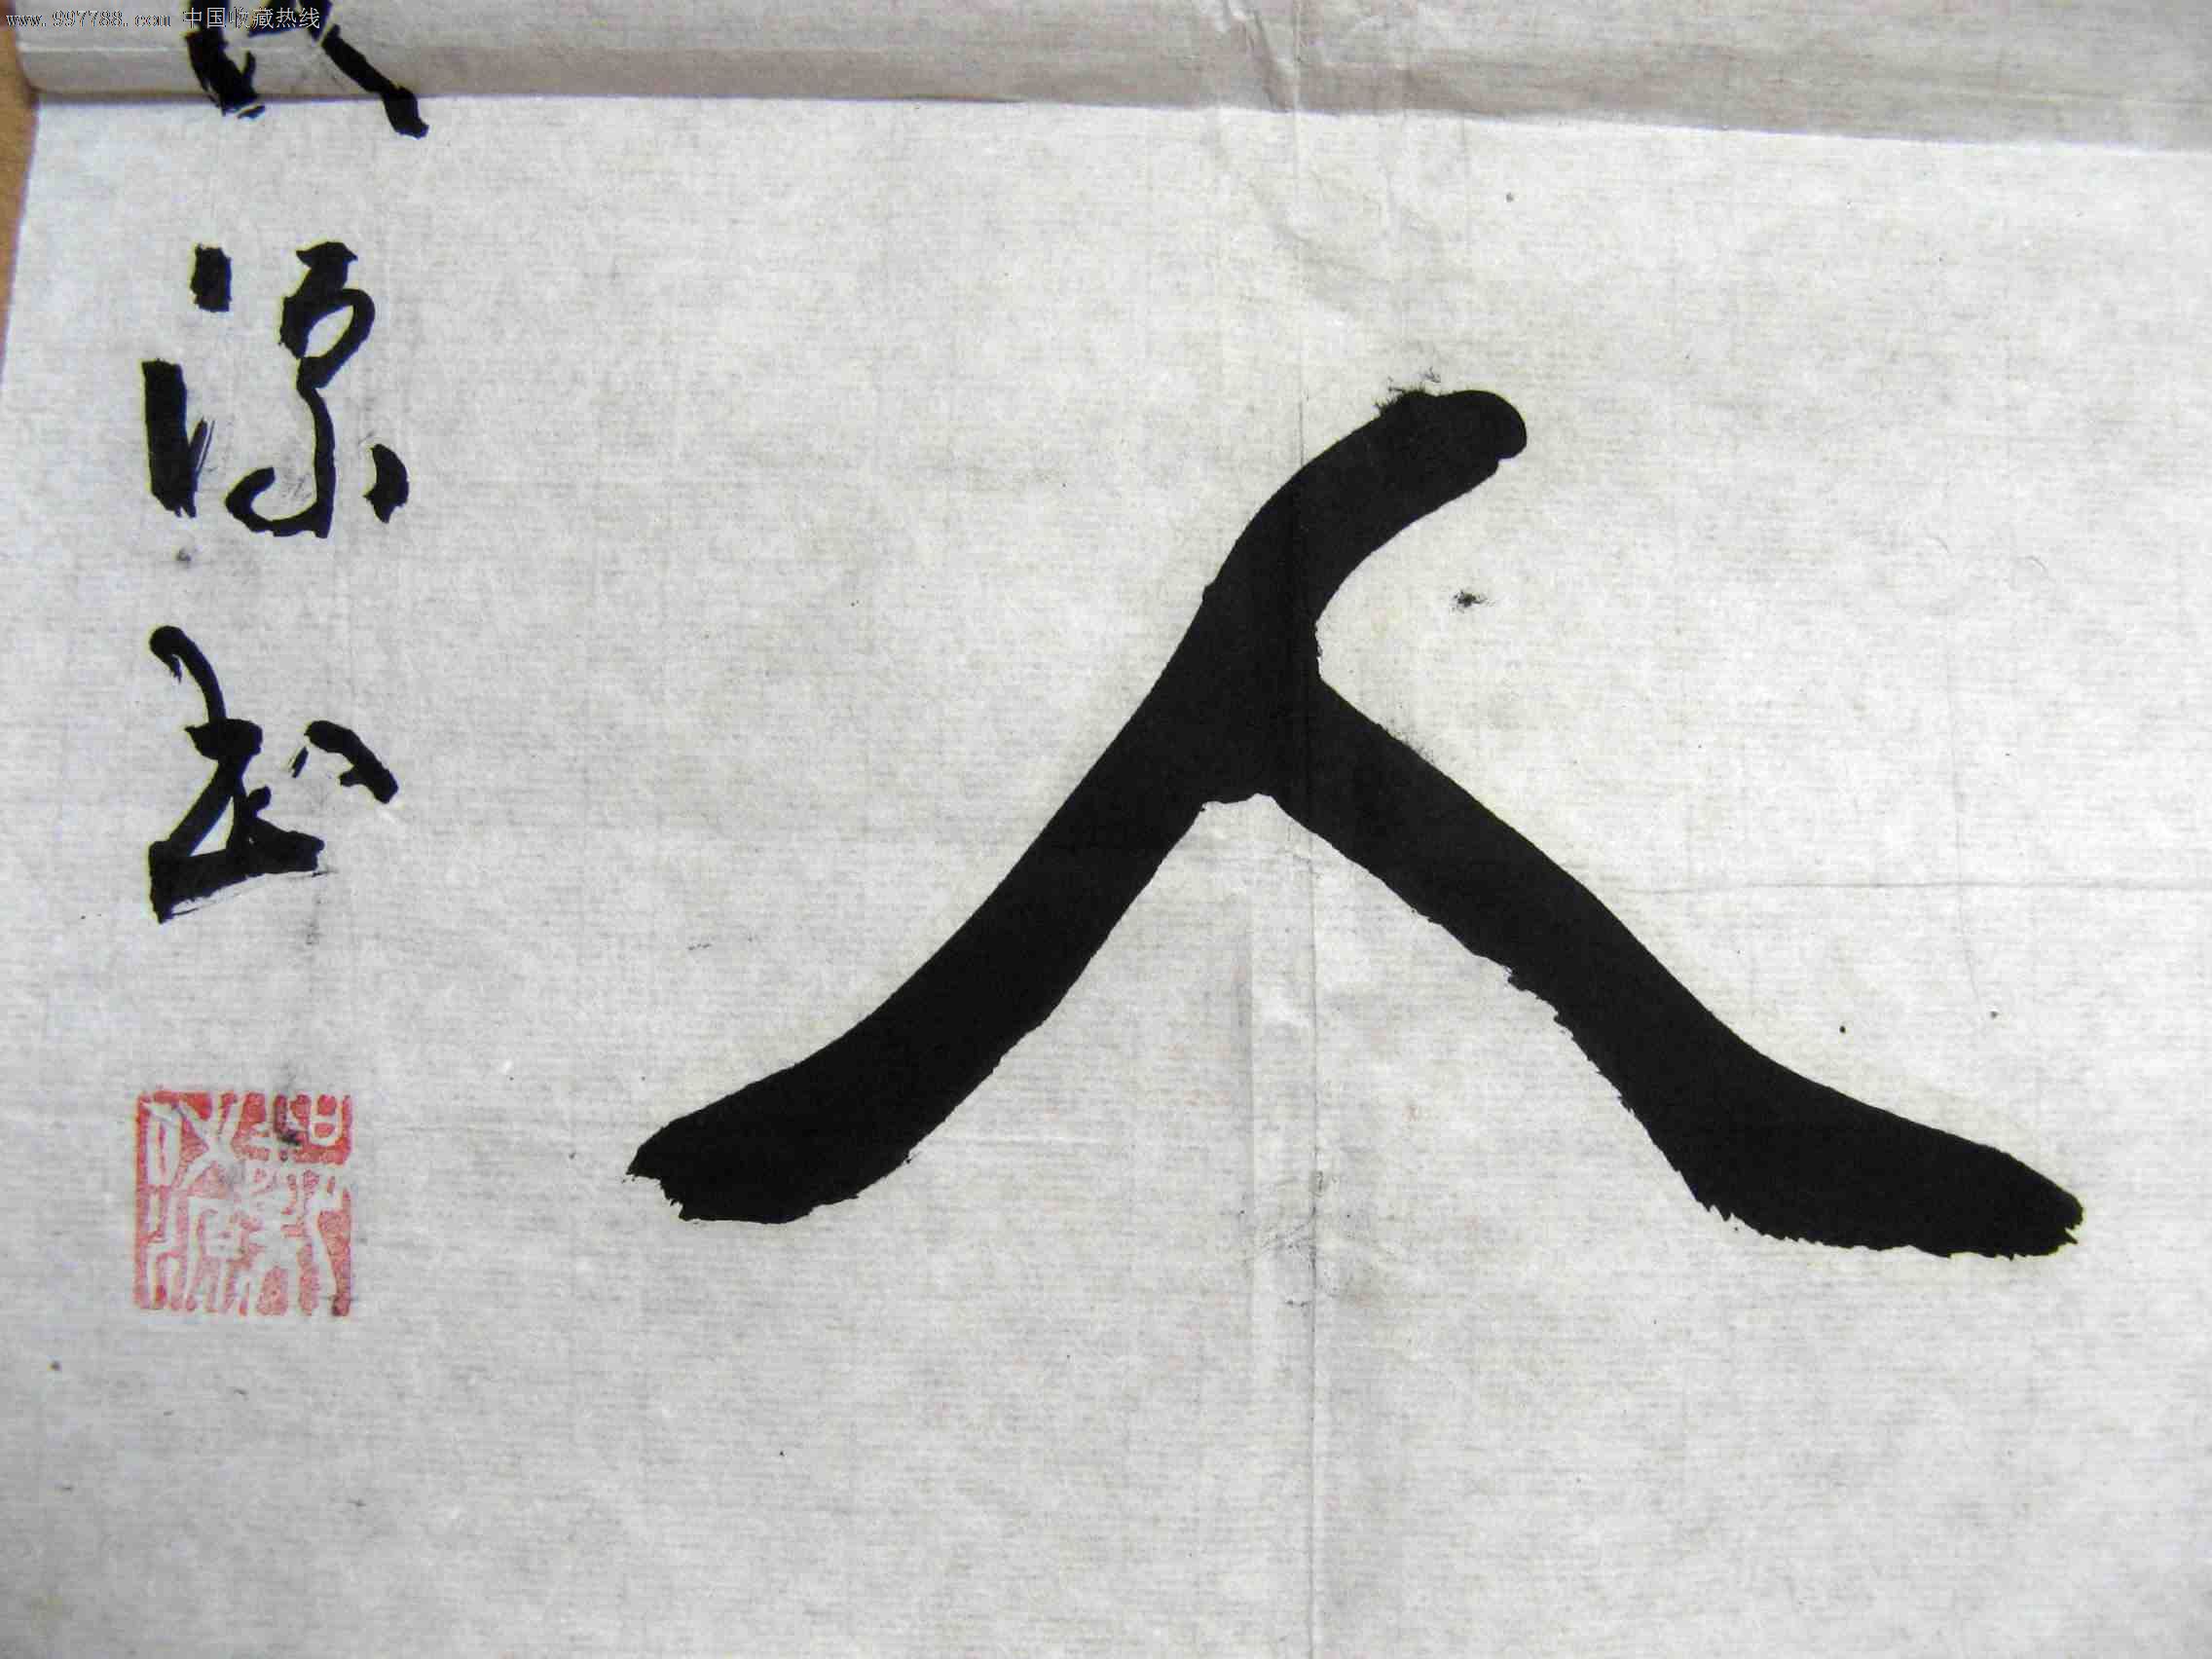 www.997788.com 中国收藏热线
人
源书